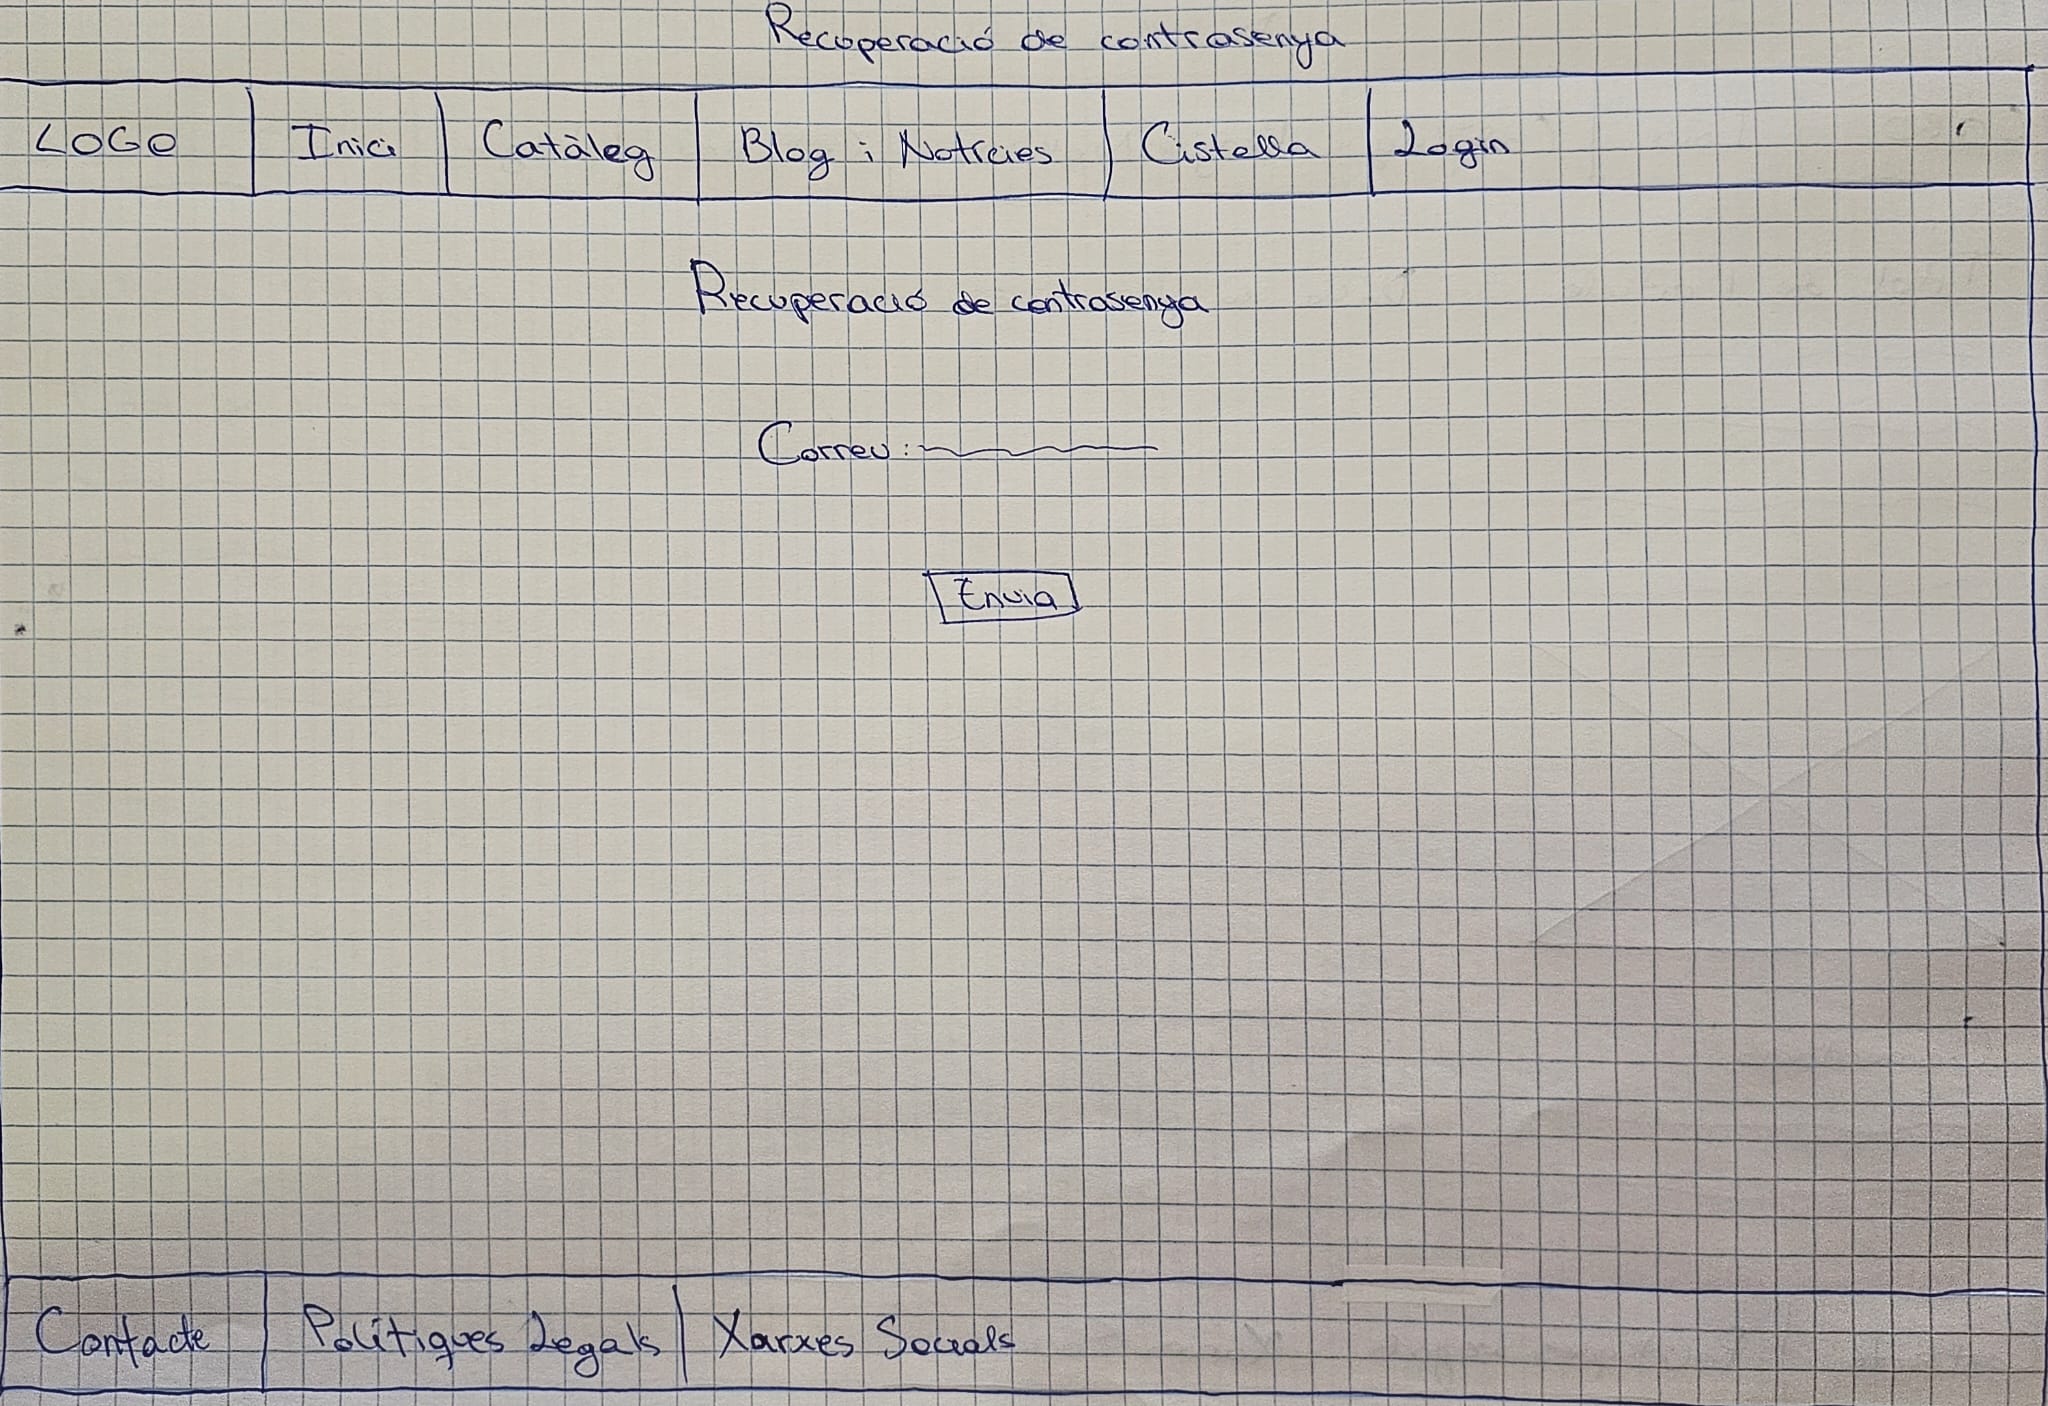 Recuperació de contrasenya
LOGO Inici Catàleg Blog i Notícies Cistella Login
Recuperació de contrasenya
Correu:
Envia
Contacte Polítiques Legals Xarxes Socials